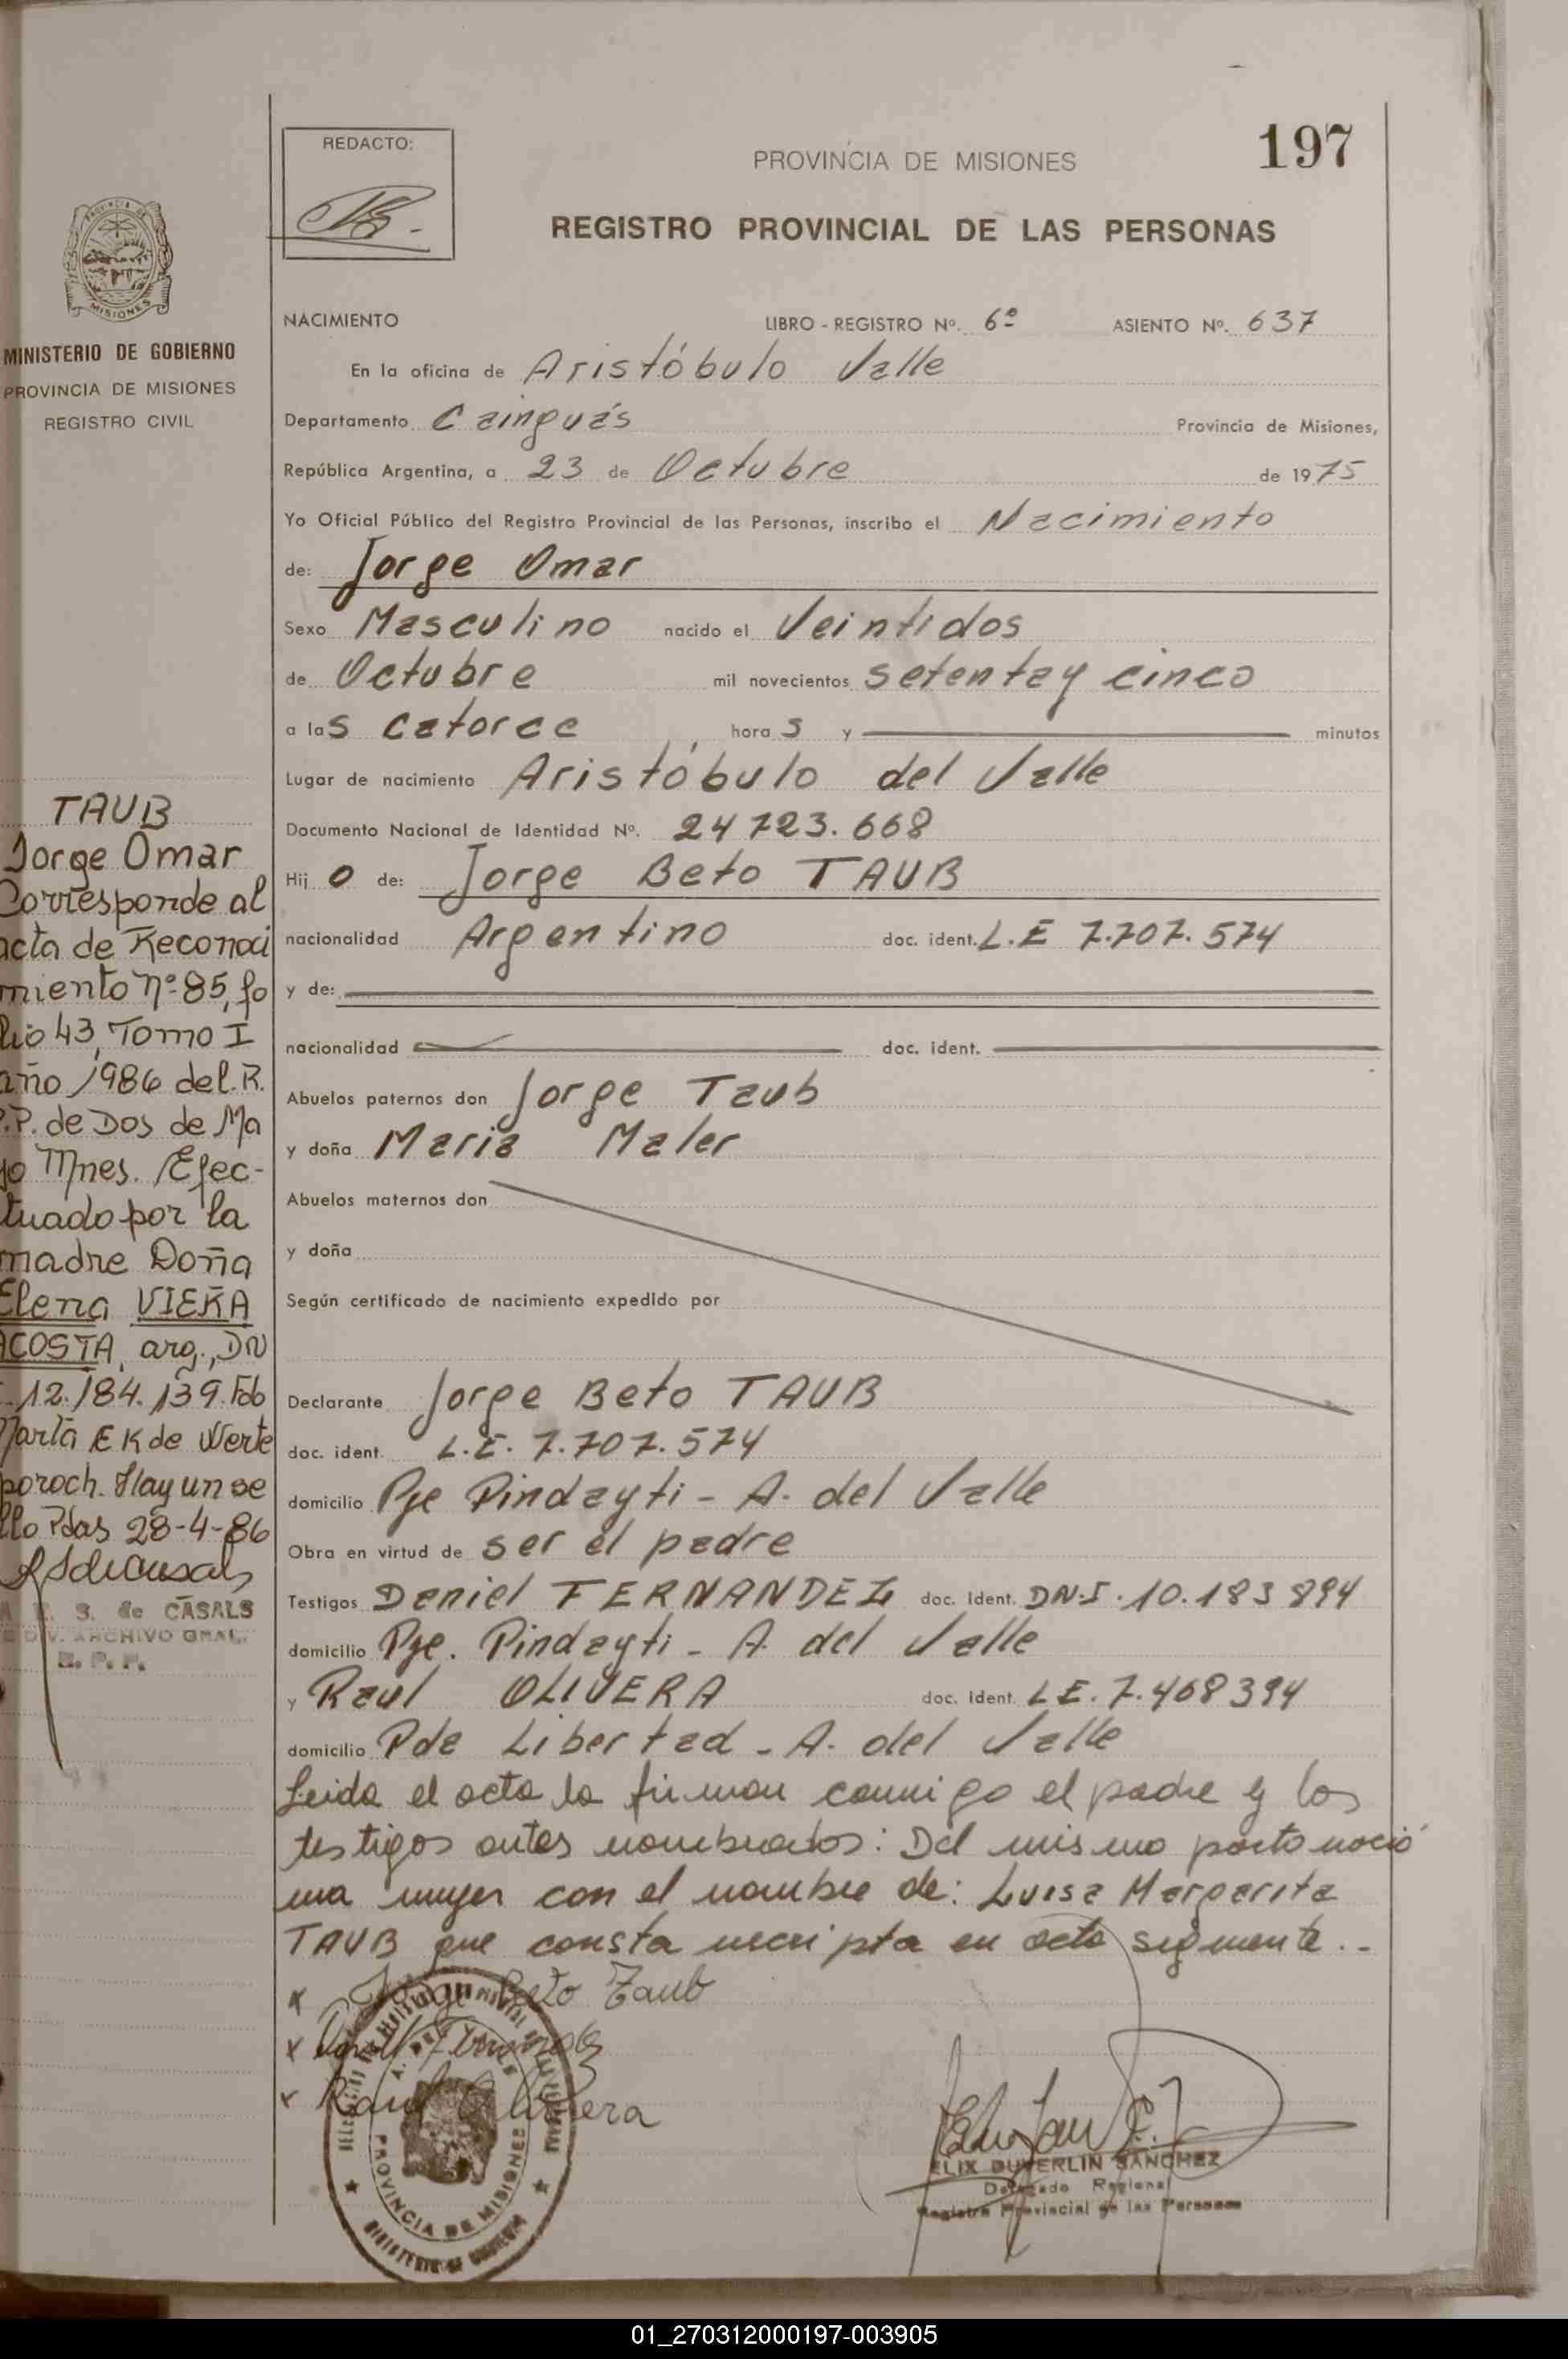 197
REDACTO:
PROVINCIA DE MISIONES
REGISTRO PROVINCIAL DE LAS PERSONAS
MISIONES
MINISTERIO DE GOBIERNO
PROVINCIA DE MISIONES
REGISTRO CIVIL
NACIMIENTO LIBRO - REGISTRO Nº. 6º ASIENTO Nº. 637
En la oficina de Aristóbulo Valle
Departamento Cainguás Provincia de Misiones,
República Argentina, a 23 de Octubre de 1975
Yo Oficial Público del Registro Provincial de las Personas, inscribo el Nacimiento
de: Jorge Omar
Sexo Masculino nacido el Veintidos
de Octubre mil novecientos setentay cinco
a las catorce, horas y minutos
Lugar de nacimiento Aristóbulo del Valle
Documento Nacional de Identidad Nº. 24723.668
Hijo de: Jorge Beto TAUB
nacionalidad Argentino doc. ident. L.E 7.707.574
y de:
nacionalidad doc. ident.
Abuelos paternos don Jorge Taub
y doña Maria Maler
Abuelos maternos don
y doña
Según certificado de nacimiento expedido por
Declarante Jorge Beto TAUB
doc. ident. L.E. 7.707.574
domicilio Pje Pindayti - A. del Valle
Obra en virtud de ser el padre
Testigos Daniel FERNANDEZ doc. ident. DN.I. 10.183894
domicilio Pje. Pindayti - A. del Valle
y Raul OLIVERA doc. ident. L.E. 7.468394
domicilio Pda Libertad - A. del Valle
Leida el acta la firman conmigo el padre y los
testigos antes nombrados: Del mismo parto nació
una mujer con el nombre de: Luisa Margarita
TAUB que consta inscripta en acta siguiente.-
x Jorge Beto Taub
x Daniel Fernandez
x Raul Olivera
PROVINCIA DE MISIONES
MINISTERIO DE GOBIERNO
ELIX DUVERLIN SANCHEZ
Delegado Regional
Registro Provincial de las Personas
TAUB
Jorge Omar
Corresponde al
acta de Reconoci
miento nº 85, fo
lio 43, Tomo I
año 1986 del R.
P.P. de Dos de Ma
yo Mnes. Efec-
tuado por la
madre Doña
Elena VIERA
ACOSTA, arg., DN
12.184.139. Fdo
Marta EK de Werte
poroch. Hay un se
llo Pdas 28-4-86
S. de CASALS
DIV. ARCHIVO GRAL.
R. P. P.
01_270312000197-003905